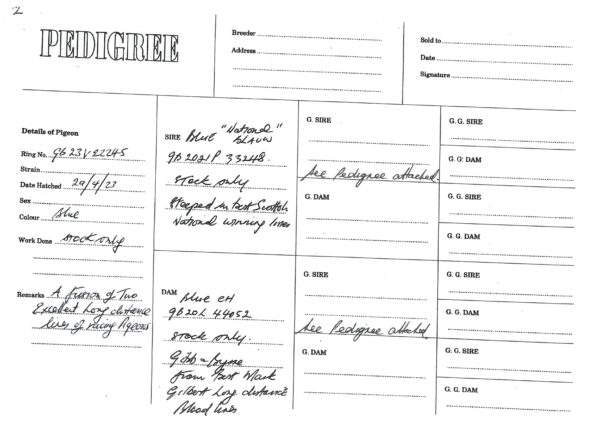 2
PEDIGREE
Breeder
Address
Sold to
Date
Signature
Details of Pigeon
Ring No. GB 23 V 22245
Strain
Date Hatched 29/4/23
Sex
Colour Blue
Work Done stock only
Remarks A fusion of Two
Excellent Long distance
lines of racing Pigeons
SIRE Blue "National"
GB 2021 P 33248.
stock only
Steeped in best Scottish
National winning lines
DAM Blue CH
GB 20 L 44052
stock only.
from Best Mark
Gilbert Long distance
Blood lines
G. SIRE
See Pedigree attached
G. DAM
G. SIRE
See Pedigree attached
G. DAM
G. G. SIRE
G. G. DAM
G. G. SIRE
G. G. DAM
G. G. SIRE
G. G. DAM
G. G. SIRE
G. G. DAM